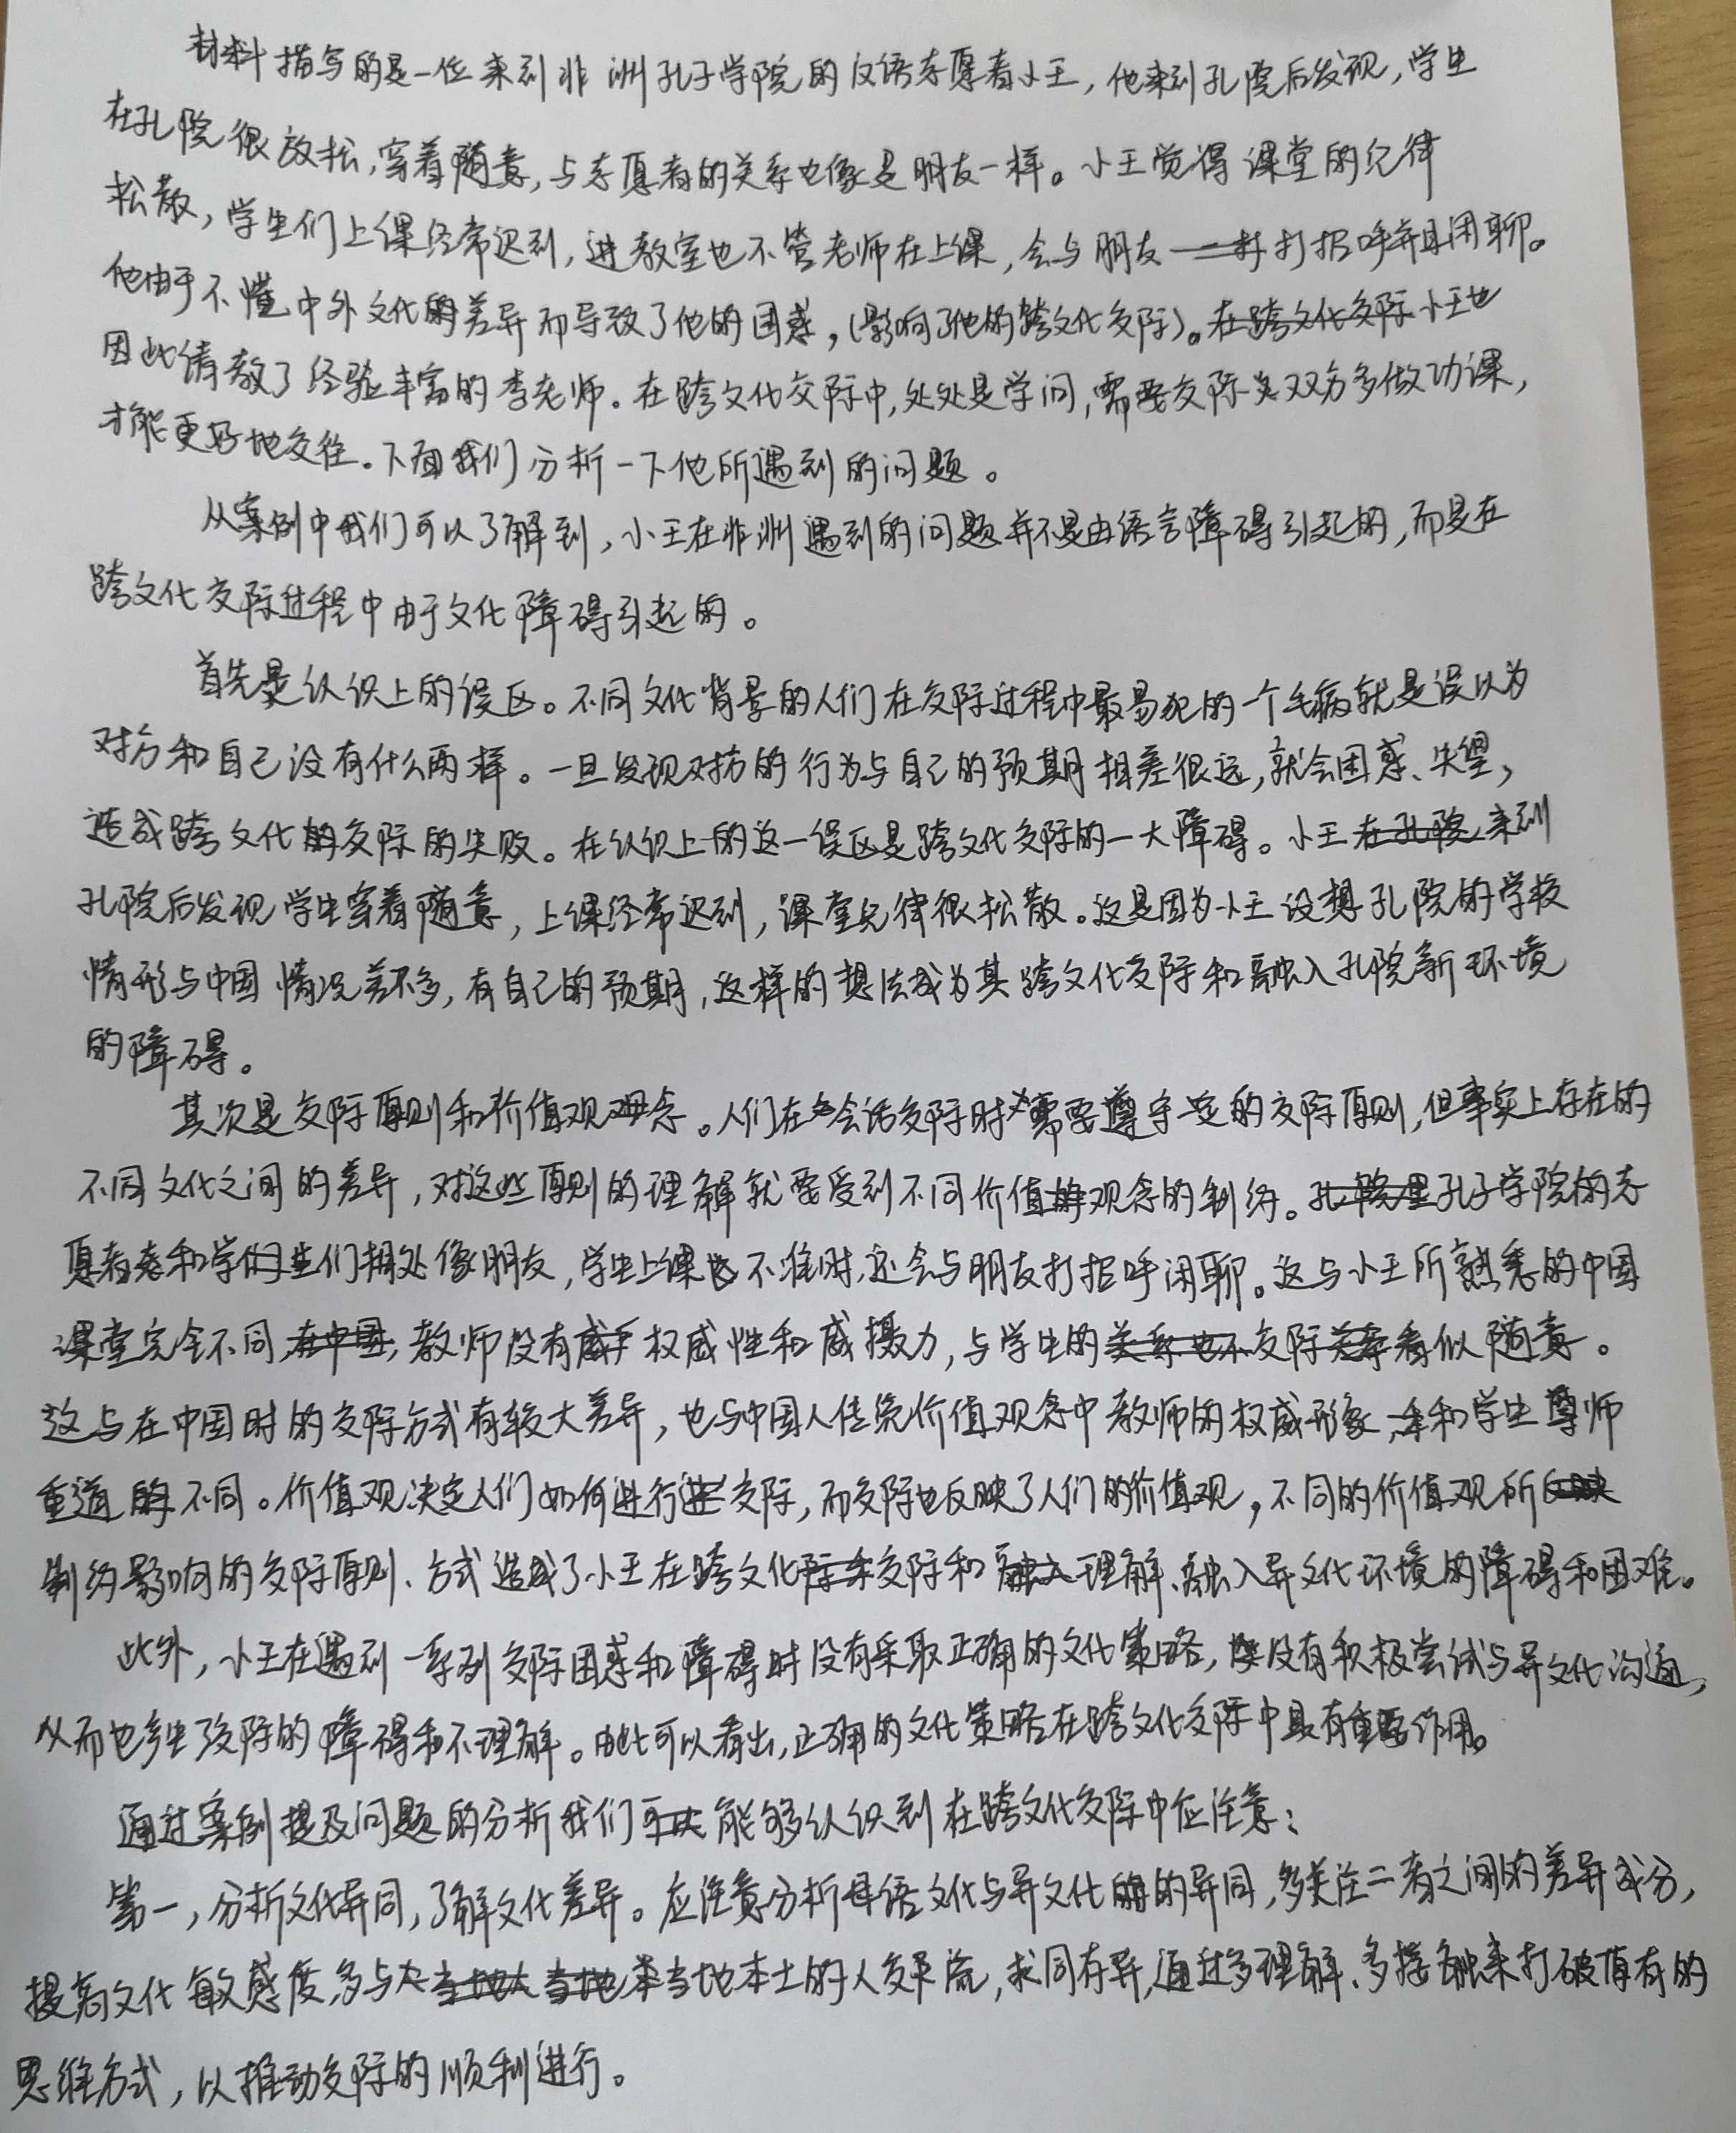 材料描写的是一位来到非洲孔子学院的汉语志愿者小王，他来到孔院后发现，学生
在孔院很放松，穿着随意，与志愿者的关系也像是朋友一样。小王觉得课堂的纪律
松散，学生们上课经常迟到，进教室也不管老师在上课，会与朋友打招呼并且闲聊。
他由于不懂中外文化的差异而导致了他的困惑，（影响了他的跨文化交际）。小王也
因此请教了经验丰富的李老师。在跨文化交际中，处处是学问，需要交际双方多做功课，
才能更好地交往。下面我们分析一下他所遇到的问题。
从案例中我们可以了解到，小王在非洲遇到的问题并不是由语言障碍引起的，而是在
跨文化交际过程中由于文化障碍引起的。
首先是认识上的误区。不同文化背景的人们在交际过程中最易犯的一个毛病就是误以为
对方和自己没有什么两样。一旦发现对方的行为与自己的预期相差很远，就会困惑、失望，
造成跨文化交际的失败。在认识上的这一误区是跨文化交际的一大障碍。小王来到
孔院后发现学生穿着随意，上课经常迟到，课堂纪律很松散。这是因为小王设想孔院的学校
情形与中国情况差不多，有自己的预期，这样的想法成为其跨文化交际和融入孔院新环境
的障碍。
其次是交际原则和价值观念。人们在会话交际时需要遵守一定的交际原则，但事实上存在的
不同文化之间的差异，对这些原则的理解就要受到不同价值观念的制约。孔子学院的志
愿者和学生们相处像朋友，学生上课不准时，还会与朋友打招呼闲聊。这与小王所熟悉的中国
课堂完全不同，教师没有权威性和威摄力，与学生的交际看似随意。
这与在中国时的交际方式有较大差异，也与中国人传统价值观念中教师的权威形象，和学生尊师
重道不同。价值观决定人们如何进行交际，而交际也反映了人们的价值观，不同的价值观所
制约影响的交际原则、方式造成了小王在跨文化交际和理解、融入异文化环境的障碍和困难。
此外，小王在遇到一系列交际困惑和障碍时没有采取正确的文化策略，没有积极尝试与异文化沟通，
从而也产生了交际的障碍和不理解。由此可以看出，正确的文化策略在跨文化交际中具有重要作用。
通过案例提及问题的分析我们能够认识到在跨文化交际中应注意：
第一，分析文化异同，了解文化差异。应注意分析母语文化与异文化的异同，多关注二者之间的差异成分，
提高文化敏感度，多与当地本土的人交流，求同存异，通过多理解、多接触来打破固有的
思维方式，以推动交际的顺利进行。